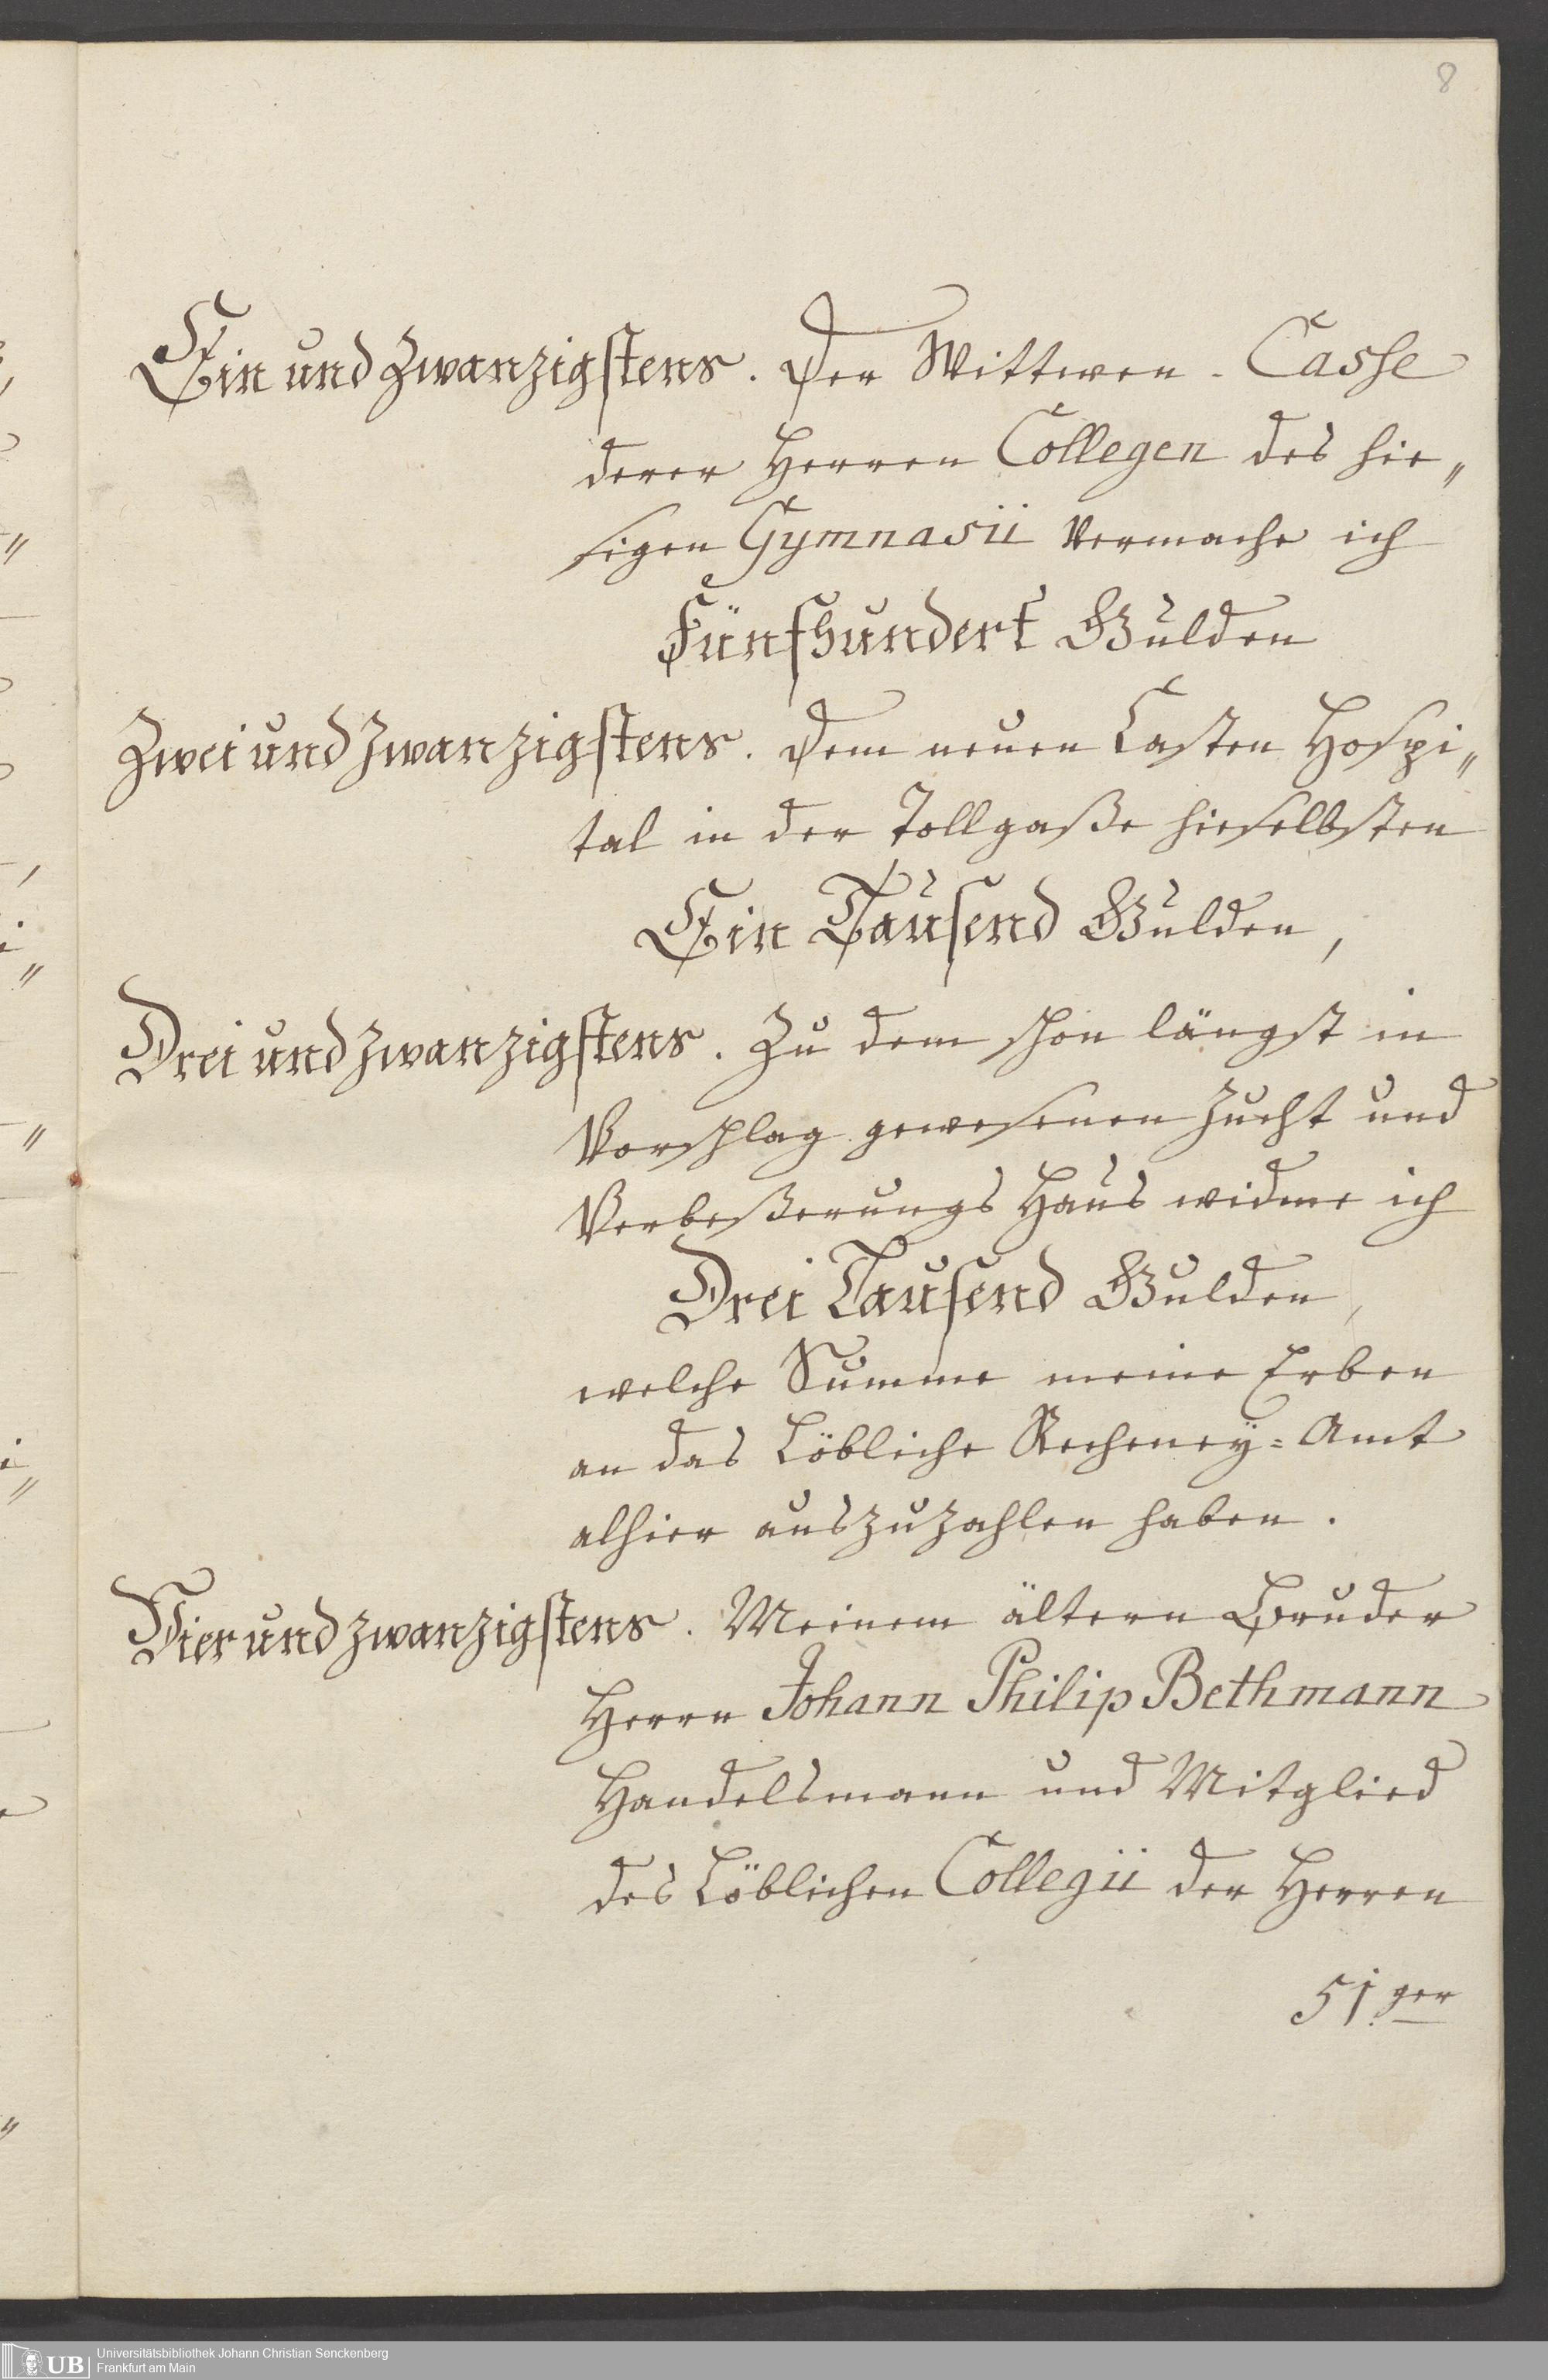 8
Ein und Zwanzigstens. Der Wittwen-Casse
derer Herren Collegen des hie„
sigen Gymnasii vermache ich
Fünfhundert Gulden
Zwei und Zwanzigstens. Dem neuen Casten Hospi„
tal in der Tollgaße hieselbsten
Ein Tausend Gulden,
Drei und Zwanzigstens. Zu dem schon längst in
Vorschlag gewesenen Zucht und
Verbeßerungs Haus widme ich
Drei Tausend Gulden,
welche Summe meine Erben
an das Löbliche Recheneÿ=Amt
alhier auszuzahlen haben.
Vier und zwanzigstens. Meinem ältern Bruder
Herrn Johann Philip Bethmann
Handelsmann und Mitglied
des Löblichen Collegii der Herren
51ger
UB
Universitätsbibliothek Johann Christian Senckenberg
Frankfurt am Main